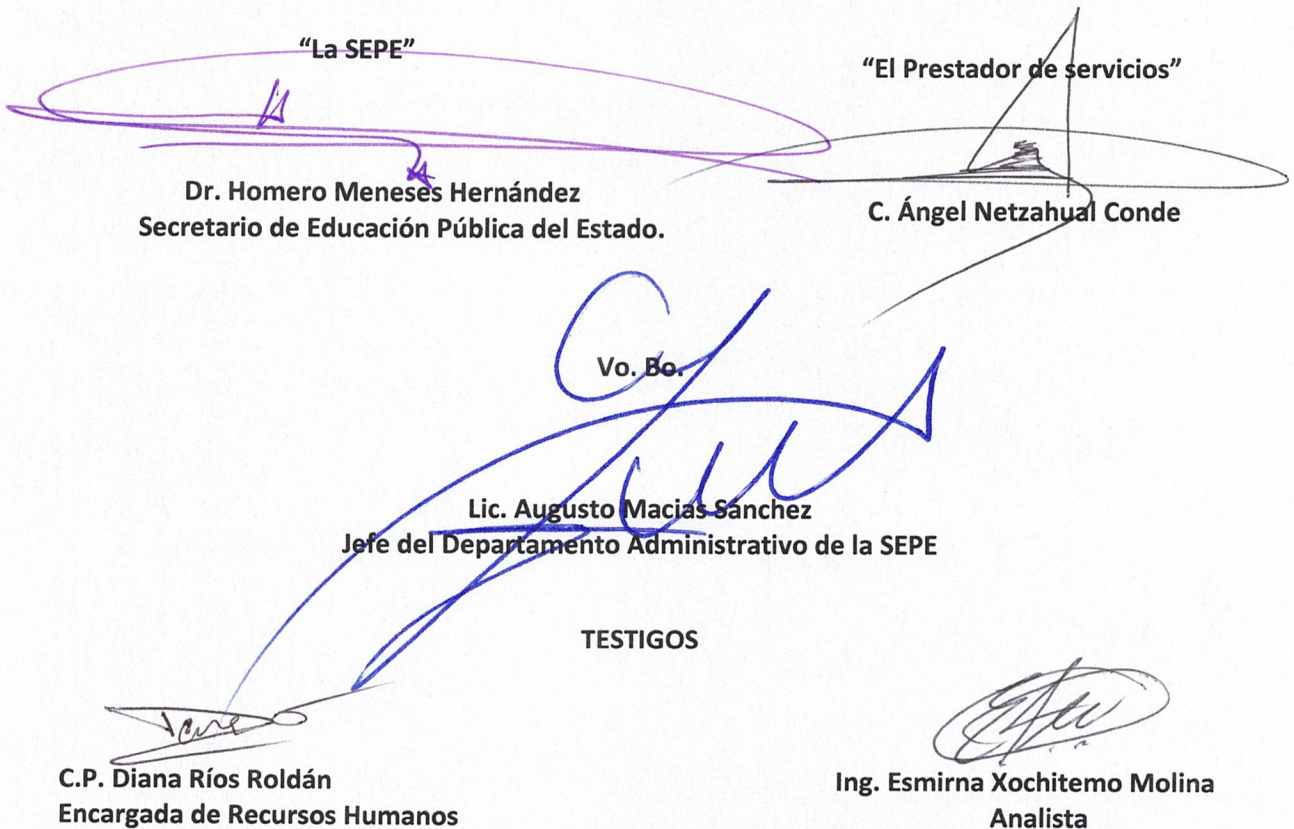 “La SEPE”
“El Prestador de servicios”
Dr. Homero Meneses Hernández
Secretario de Educación Pública del Estado.
C. Ángel Netzahual Conde
Vo. Bo.
Lic. Augusto Macias Sánchez
Jefe del Departamento Administrativo de la SEPE
TESTIGOS
C.P. Diana Ríos Roldán
Encargada de Recursos Humanos
Ing. Esmirna Xochitemo Molina
Analista